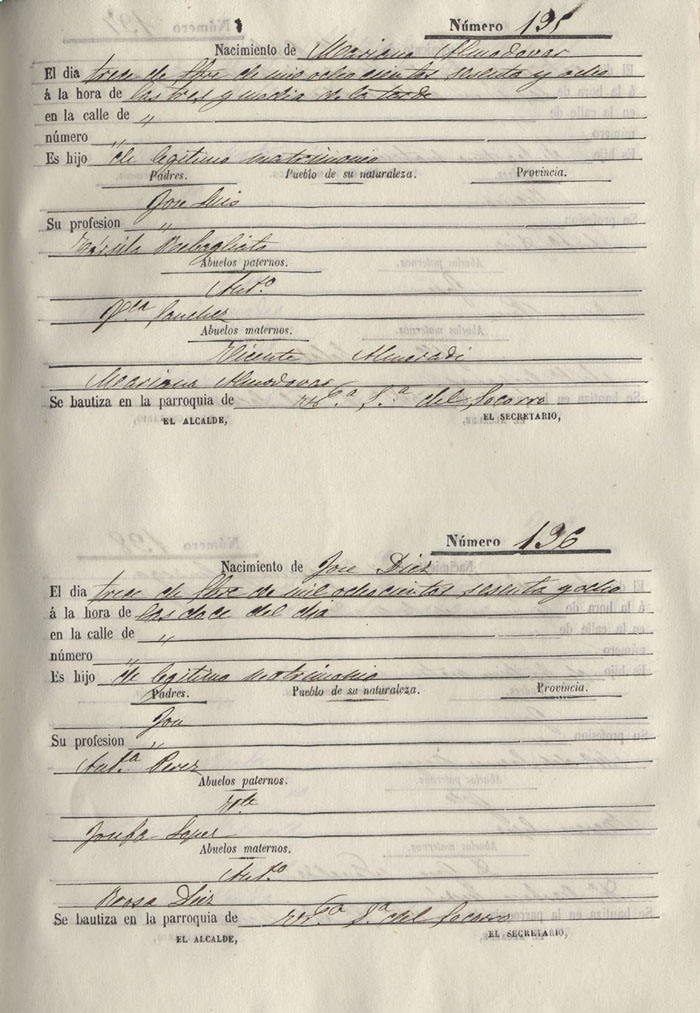 Número 195
Nacimiento de Mariana Almodovar
El dia trece de de mil ochocientos sesenta y ocho
á la hora de las tres y media de la tarde
en la calle de "
número "
Es hijo de legitimo matrimonio
Padres. Pueblo de su naturaleza. Provincia.
Jose Luis
Su profesion "
Abuelos paternos.
Antº
Sanchez
Abuelos maternos.
Vicente Almoradi
Mariana Almodovar
Se bautiza en la parroquia de Sª del Socorro
EL ALCALDE, EL SECRETARIO,
Número 196
Nacimiento de Jose Diez
El dia trece de de mil ochocientos sesenta y ocho
á la hora de las doce del dia
en la calle de "
número "
Es hijo de legitimo matrimonio
Padres. Pueblo de su naturaleza. Provincia.
Jose
Su profesion "
Antª Perez
Abuelos paternos.
Josefa Lopez
Abuelos maternos.
Antº
Diez
Se bautiza en la parroquia de Sª del Socorro
EL ALCALDE, EL SECRETARIO,